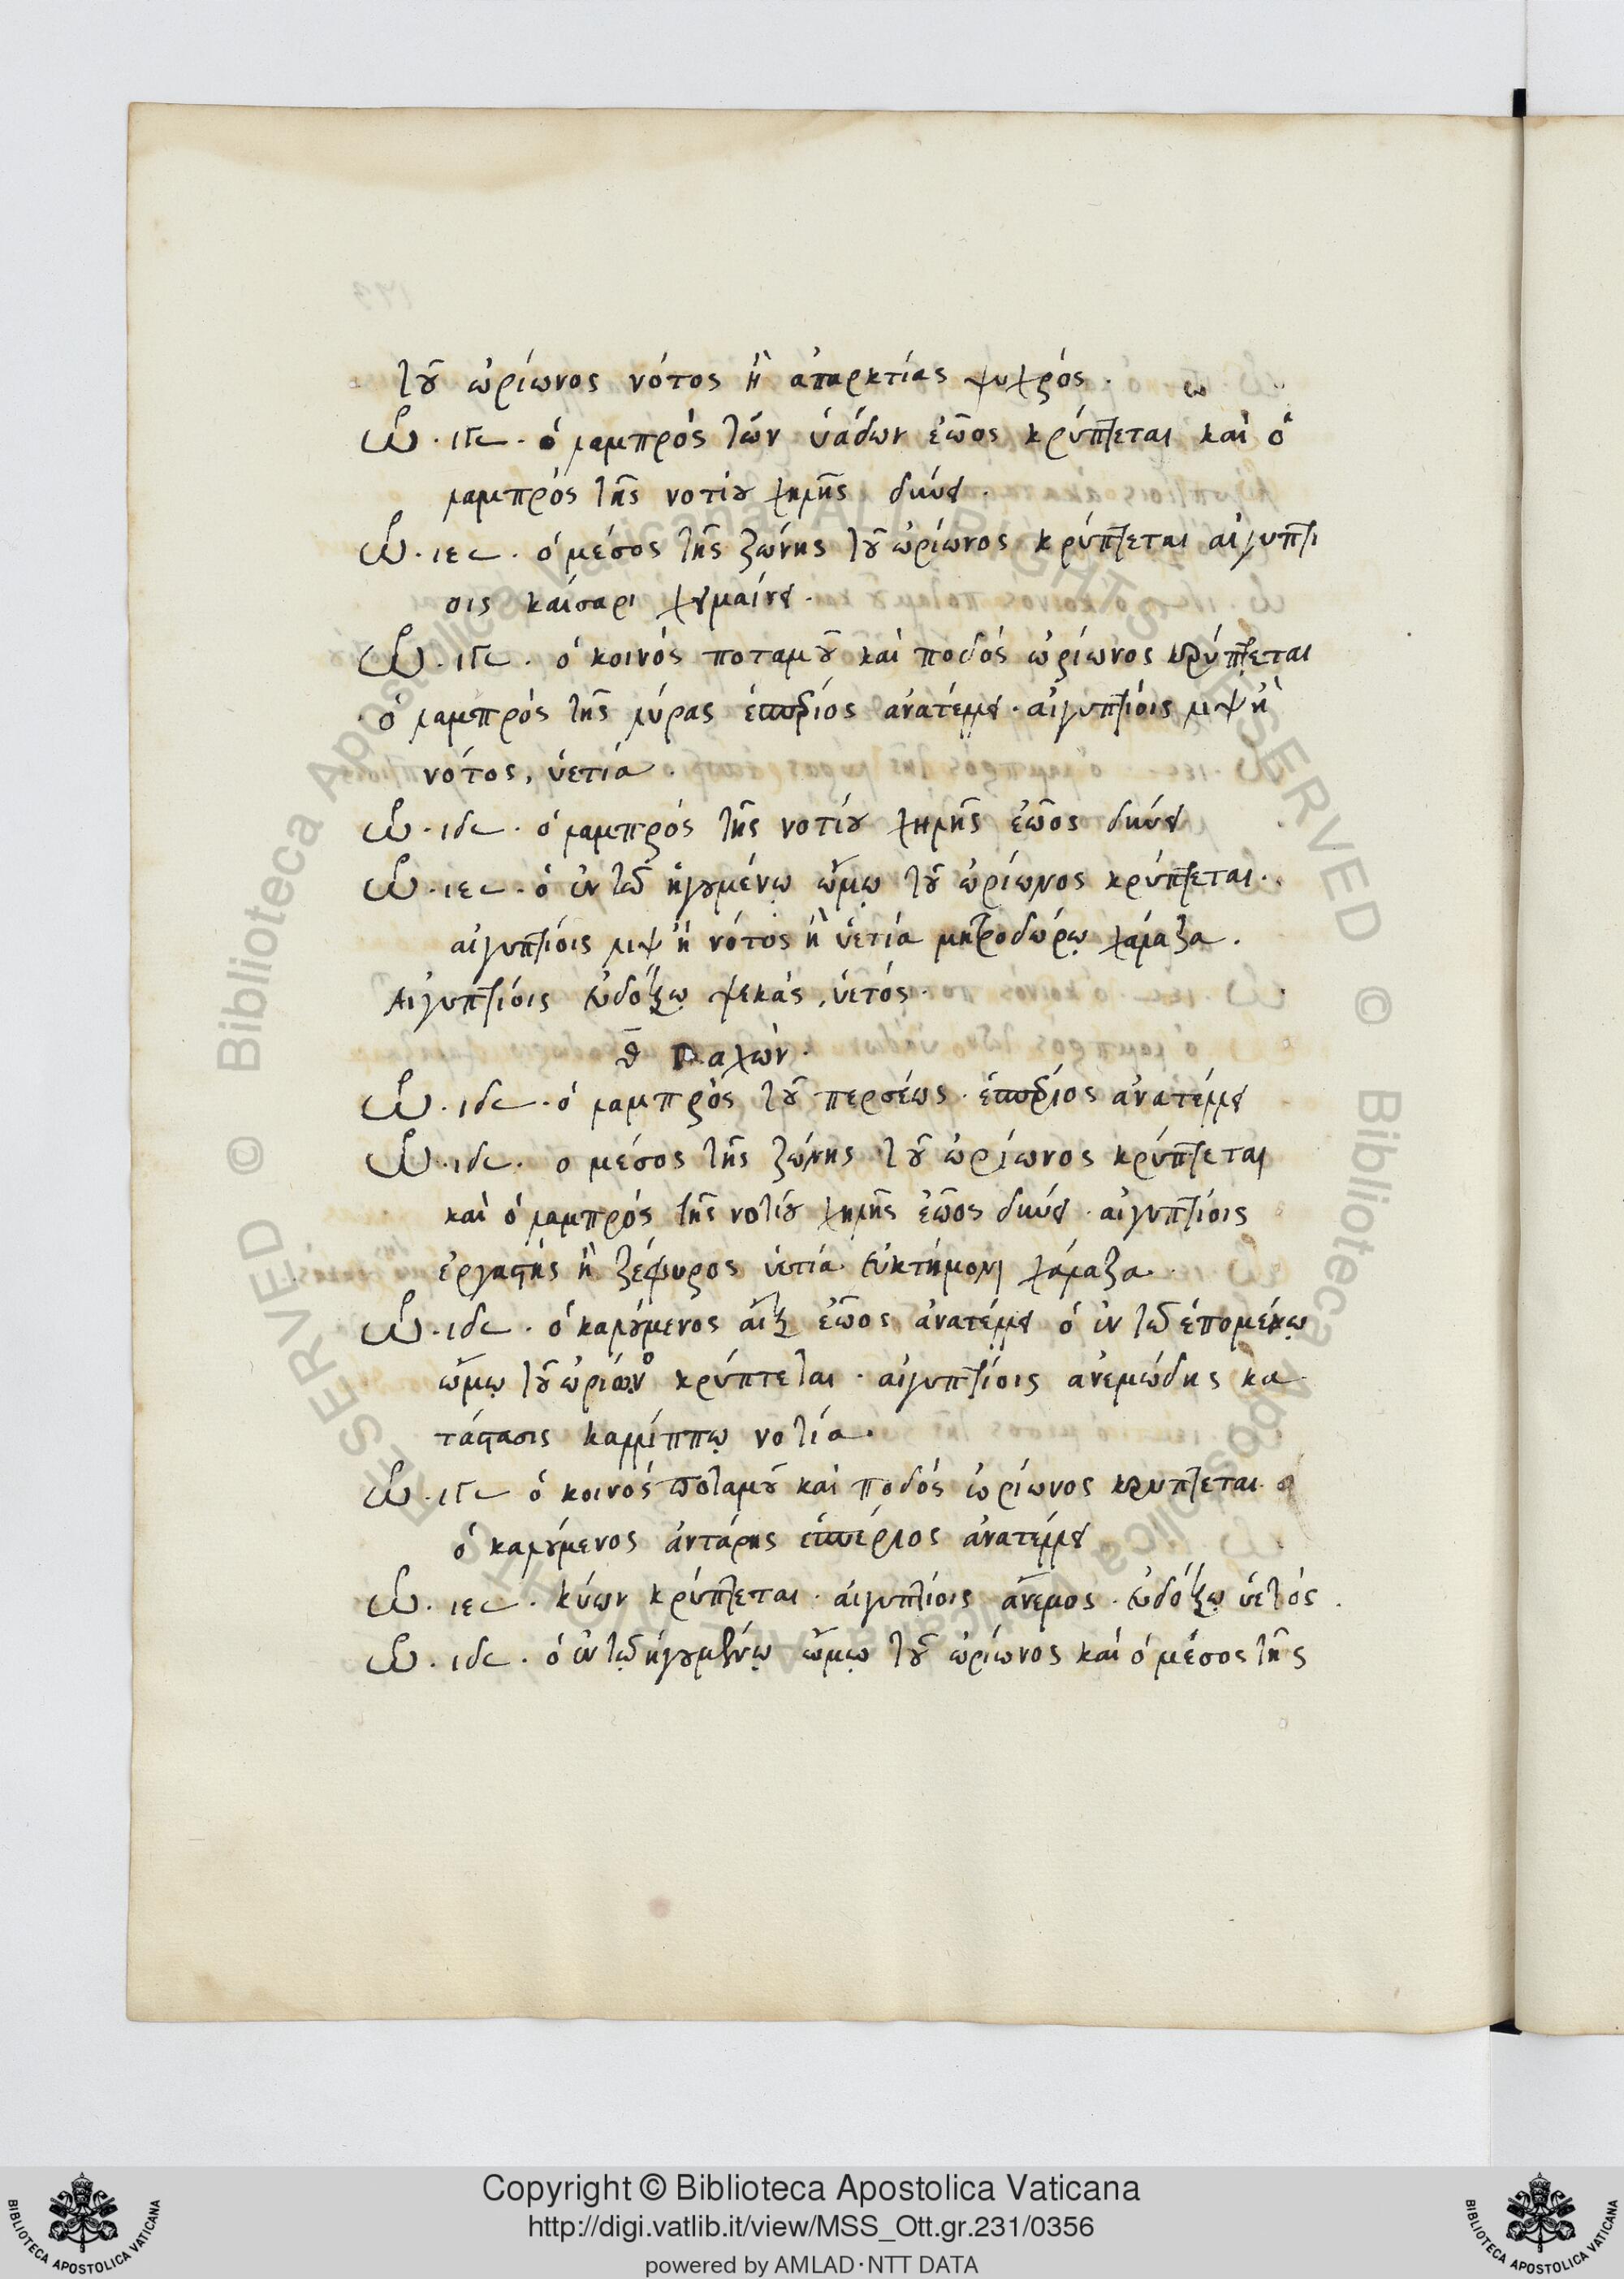 τοῦ ὠρίωνος νότος ἢ ἀπαρκτίας ψυχρός.
ὡ. ιγ 𐅵. ὁ λαμπρὸς τῶν ὑάδων ἑῷος κρύπτεται καὶ ὁ
λαμπρὸς τῆς νοτίου χηλῆς δύνει.
ὡ. ιε 𐅵. ὁ μέσος τῆς ζώνης τοῦ ὠρίωνος κρύπτεται αἰγυπτί
οις καίσαρι χειμαίνει.
ὡ. ιγ 𐅵. ὁ κοινὸς ποταμοῦ καὶ ποδὸς ὠρίωνος κρύπτεται
ὁ λαμπρὸς τῆς λύρας ἑσπέριος ἀνατέλλει. αἰγυπτίοις λιψ ἢ
νότος, ὑετία.
ὡ. ιδ 𐅵. ὁ λαμπρὸς τῆς νοτίου χηλῆς ἑῷος δύνει
ὡ. ιε 𐅵. ὁ ἐν τῷ ἡγουμένῳ ὤμῳ τοῦ ὠρίωνος κρύπτεται.
αἰγυπτίοις λιψ ἢ νότος ἢ ὑετία μητροδώρῳ χάλαζα.
Αἰγυπτίοις εὐδόξῳ ψεκάς, ὑετός.
θ Παχών.
ὡ. ιδ 𐅵. ὁ λαμπρὸς τοῦ περσέως ἑσπέριος ἀνατέλλει
ὡ. ιδ 𐅵. ο μέσος τῆς ζώνης τοῦ ὠρίωνος κρύπτεται
καὶ ὁ λαμπρὸς τῆς νοτίου χηλῆς ἑῷος δύνει. αἰγυπτίοις
ἀργαστὴς ἢ ζέφυρος ὑετία εὐκτήμονι χάλαζα.
ὡ. ιδ 𐅵. ὁ καλούμενος αἲξ ἑῷος ἀνατέλλει ὁ ἐν τῷ ἑπομένῳ
ὤμῳ τοῦ ὠρίωνο κρύπτεται. αἰγυπτίοις ἀνεμώδης κα
τάστασις καλλίππῳ νοτία.
ὡ. ιγ 𐅵 ὁ κοινὸς ποταμοῦ καὶ ποδὸς ὠρίωνος κρυπτεται.
ὁ καλούμενος ἀντάρης ἑσπέριος ἀνατέλλει
ὡ. ιε 𐅵. κύων κρύπτεται. αἰγυπτίοις ἄνεμος. εὐδόξῳ ὑετός.
ὡ. ιδ 𐅵. ὁ ἐν τῷ ἡγουμένῳ ὤμῳ τοῦ ὠρίωνος καὶ ὁ μέσος τῆς
Copyright © Biblioteca Apostolica Vaticana
http://digi.vatlib.it/view/MSS_Ott.gr.231/0356
powered by AMLAD·NTT DATA